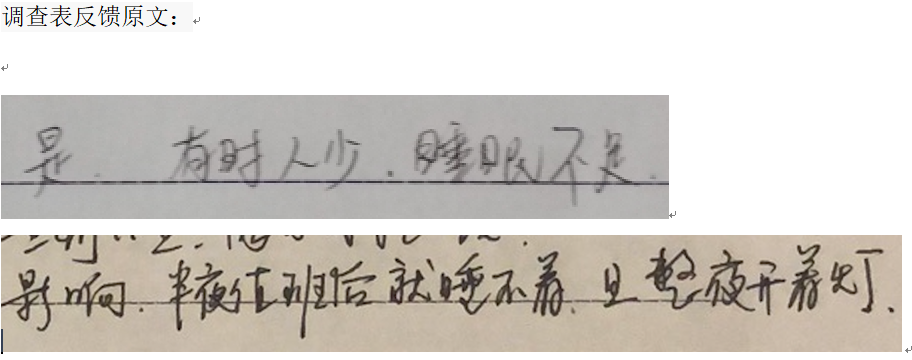 调查表反馈原文:
是. 有时人少.睡眠不足.
影响.半夜值班后就睡不着.且整夜开着灯.